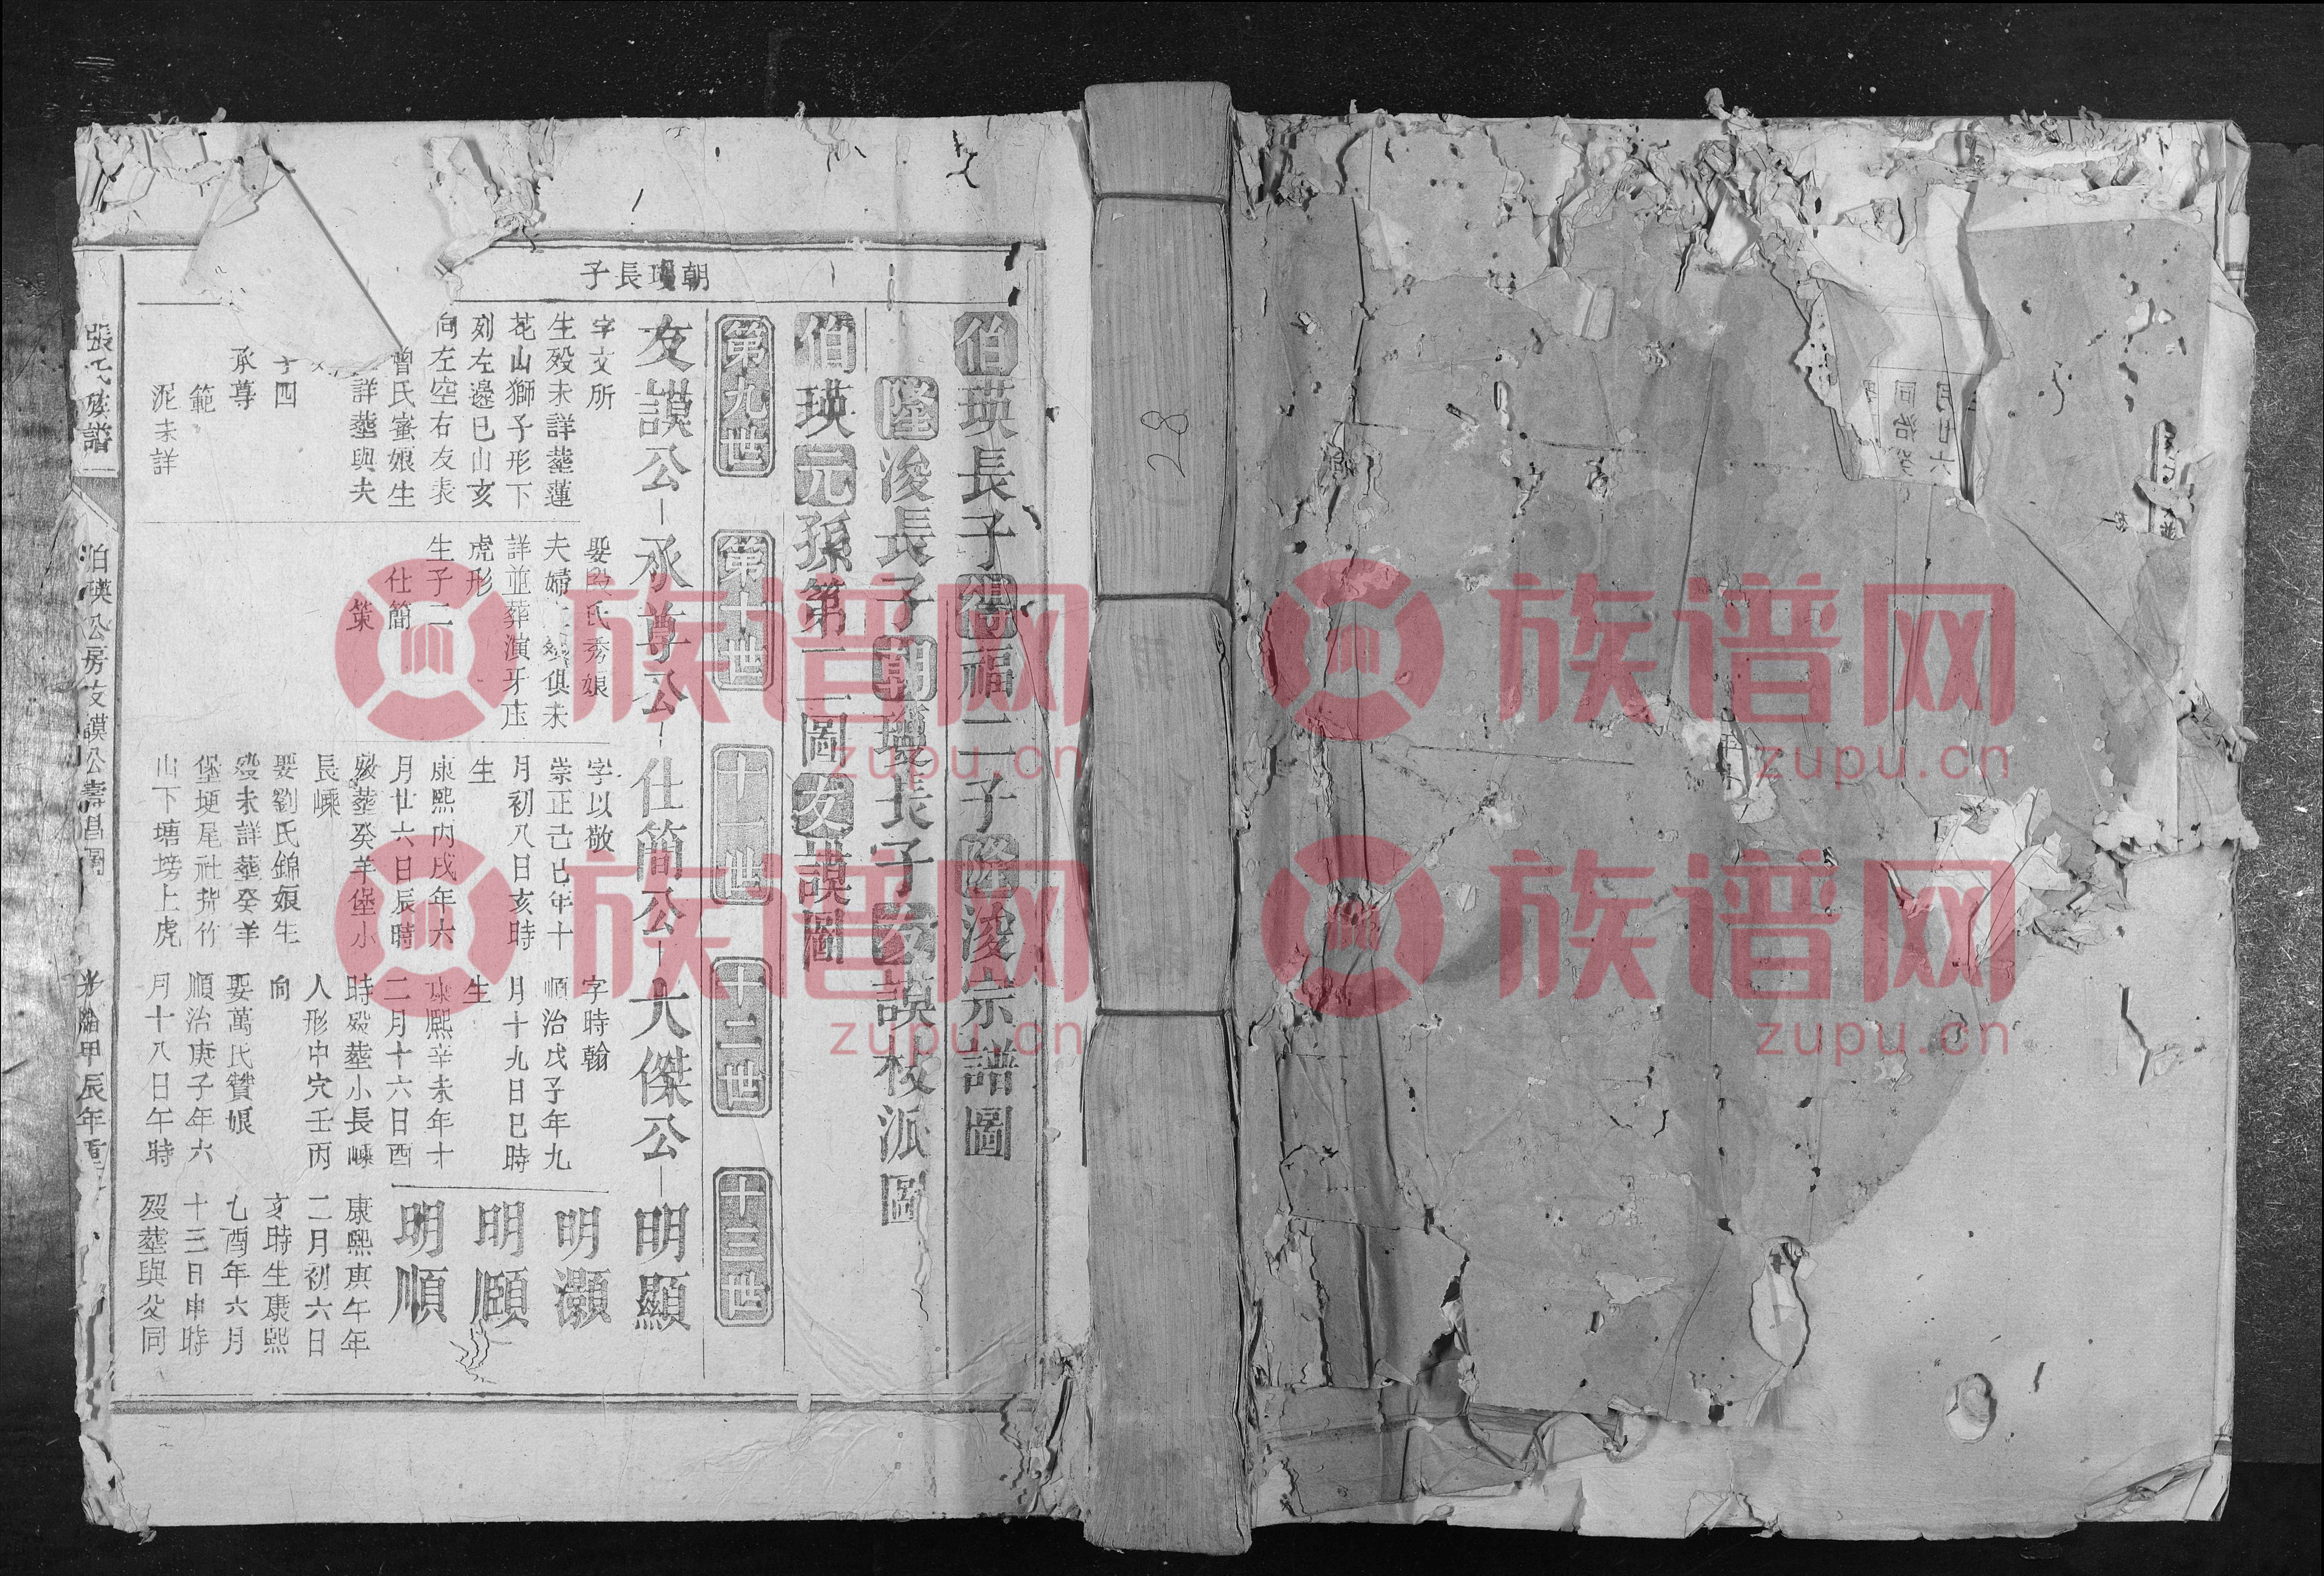 朝璁長子
伯瑛長子得福二子隆浚宗譜圖
隆浚長子朝璁長子友謨枝派圖
伯瑛元孫第一圖友謨圖
第九世
第十世
十一世
十二世
十三世
友謨公
承尊公
仕簡公
大傑公
明顯
明灝
明頤
明順
字文所
生歿未詳塟蓮
花山獅子形下
列左邊巳山亥
向左空右友表
曾氏蜜娘生
詳塟與夫
子四
承尊
範
泥未詳
娶段氏秀娘
夫婦生歿俱未
詳並葬演牙庄
虎形
生子二
仕簡
策
字以敬
崇正己巳年十
月初八日亥時
生
康熙丙戌年六
月廿六日辰時
歿塟癸羊堡小
長嵊
娶劉氏錦娘生
歿未詳塟癸羊
堡埂尾社背竹
山下塘塝上虎
字時翰
順治戊子年九
月十九日巳時
生
康熙辛未年十
二月十六日酉
時歿塟小長嵊
人形中穴壬丙
向
娶萬氏贊娘
順治庚子年六
月十八日午時
康熙庚午年
二月初六日
亥時生康熙
乙酉年六月
十三日申時
歿塟與父同
張氏族譜
伯瑛公房友謨公壽昌圖
光緒甲辰年重
28
月廿六
同治癸
族谱网
zupu.cn
族谱网
zupu.cn
族谱网
zupu.cn
族谱网
zupu.cn